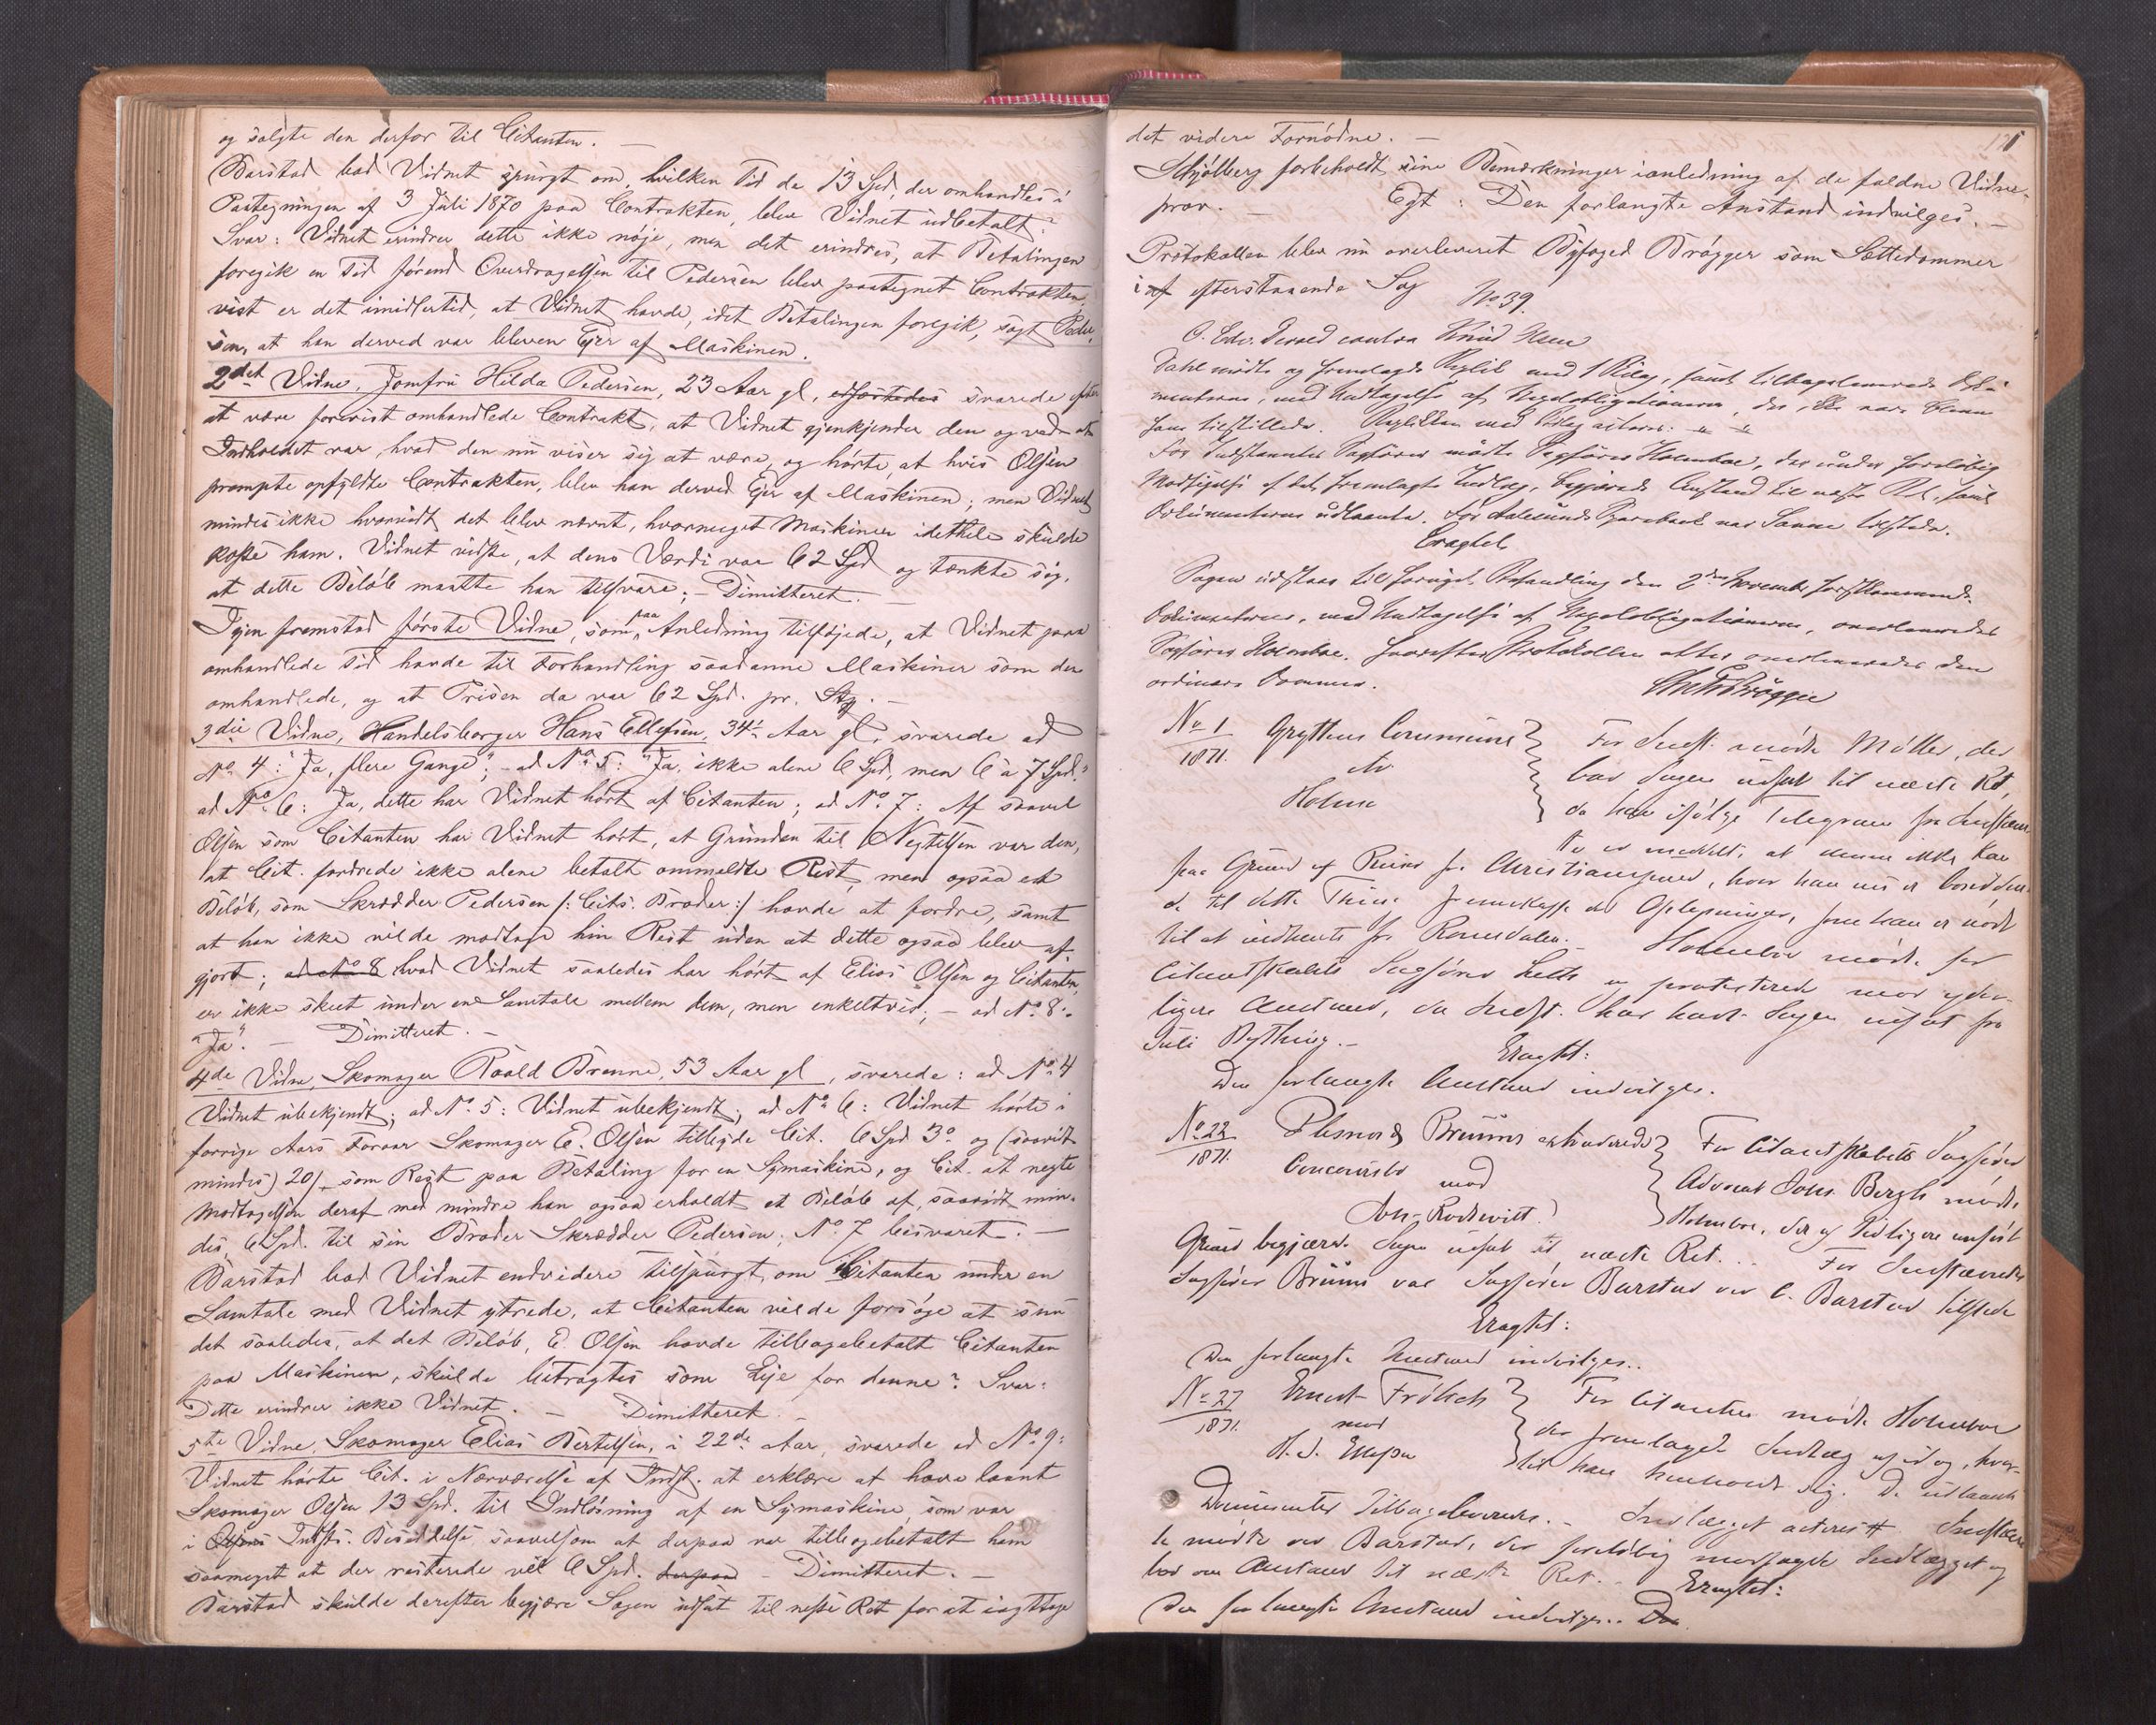 og solgte den derfor til Citanten. —
Barstad bad Vidnet spurgt om, hvilken Tid de 13 Spd, der omhandles i
Paategningen af 3 Juli 1870 paa Contrakten, blev Vidnet udbetalt?
Svar: Vidnet erindrer dette ikke nøje, men det erindres, at Betalingen
foregik en Tid førend Overdragelsen til Pedersen blev paategnet Contrakten,
vist er det imidlertid, at Vidnet havde, idet Betalingen foregik, sagt Peder-
sen, at han derved var bleven Ejer af Maskinen.
2det Vidne, Jomfru Hilda Pedersen, 23 Aar gl, edfæstedes svarede efter
at være forevist omhandlede Contrakt, at Vidnet gjenkjender den og ved at
Indholdet var, hvad den nu viser sig at være, og hørte, at hvis Olsen
prompte opfyldte Contrakten, blev han derved Ejer af Maskinen; men Vidnet
mindes ikke hvorvidt det blev nævnt, hvormeget Maskinen idethele skulde
koste ham. Vidnet vidste, at dens Værdi var 62 Spd og tænkte sig,
at dette Beløb maatte han tilsvare; — Dimitteret. —
Igjen fremstod første Vidne, som paa Anledning tilføjede, at Vidnet paa
omhandlede Tid havde til Forhandling saadanne Maskiner som den
omhandlede, og at Prisen da var 62 Spd. pr. Stk. —
3die Vidne, Handelsborger Hans Ellefsen, 34 Aar gl, svarede ad
No 4: "Ja, flere Gange"; ad No 5: "Ja, ikke alene 6 Spd, men 6 à 7 Spd."
ad No 6: Ja, dette har Vidnet hørt af Citanten; ad No. 7: Af saavel
Olsen som Citanten har Vidnet hørt, at Grunden til Negtelsen var den,
at Cit. fordrede ikke alene betalt ommeldte Rest, men ogsaa et
Beløb, som Skrædder Pedersen /: Cits. Broder :/ havde at fordre, samt
at han ikke vilde modtage hin Rest uden at dette ogsaa blev af-
gjort; ad No 8 hvad Vidnet saaledes har hørt af Elias Olsen og Citanten,
er ikke skeet under en Samtale mellem dem, men enkeltvis; — ad No. 8:
"Ja". — Dimitteret. —
4de Vidne, Skomager Roald Brenne, 53 Aar gl, svarede: ad No 4
Vidnet ubekjendt; ad No. 5: Vidnet ubekjendt; ad No 6: Vidnet hørte i
forrige Aars Foraar Skomager E. Olsen tilbyde Cit. 6 Spd 3 og (saavidt
mindes) 20 som Rest paa Betaling for en Symaskine, og Cit. at negte
Modtagelsen deraf med mindre han ogsaa erholdt et Beløb af, saavidt min-
des, 6 Spd. til sin Broder Skrædder Pedersen; No. 7 besvaret. —
Barstad bad Vidnet endvidere tilspurgt, om Citanten under en
Samtale med Vidnet ytrede, at Citanten vilde forsøge at sno
det saaledes, at det Beløb, E. Olsen havde tilbagebetalt Citanten
paa Maskinen, skulde betragtes som Leje for denne? Svar:
Dette erindrer ikke Vidnet. — Dimitteret. —
5te Vidne, Skomager Elias Bertelsen, i 22de Aar, svarede ad No 9:
Vidnet hørte Cit. i Nærværelse af Indst. at erklære at have laant
Skomager Olsen 13 Spd. til Indløsning af en Symaskine, som var
i Olsens Indsts. Besiddelse saavelsom at derpaa var tilbagebetalt ham
saameget at der resterede vel 6 Spd. derpaa — Dimitteret. —
Barstad skulde derefter begjære Sagen udsat til neste Ret for at iagttage
det videre Fornødne. —
Schjølberg forbeholdt sine Bemærkninger i anledning af de faldne Vidne-
prov. — Egt: Den forlangte Anstand indvilges. —
Protokollen blev nu overleveret Byfoged Brøgger som Sættedommer
i af efterstaaende Sag No. 39.
contra Knud
Dahl mødte og fremlagde Replik med 1 Bilag, samt tilbageleverede Doku-
menterne, med Undtagelse af Hegdobligationerne, der ikke vare
ham tilstillede. Repliken med Bilag acteres:
For Indstævntes Sagfører mødte Sagfører Holmboe, der under foreløbig
Modsigelse af det fremlagte Indlæg, begjærede Anstand til næste Ret, samt
Dokumenterne udlaante. For Aalesunds Sparebank var Sanne tilstede.
Eragtet
Sagen udstaar til foreløbig Behandling den 2den November førstkommende.
Dokumenterne, med Undtagelse af, overleveredes
Sagfører Holmboe. Hvorefter Protokollen atter overleveredes den
ordinære Dommer.
Brøgger
No 1
1871.
Gryttens Commune
ctr.
Holm
For Indst. mødte Møller, der
bad Sagen udsat til næste Ret,
da han ifølge Telegram fra Indstævn-
te er meddelt, at denne ikke kan
paa Grund af Reise fra Christiansund, hvor han nu er
de til dette Thing fremskaffe de Oplysninger, som han er nødt
til at indhente fra Romsdalen. — Holmboe mødte for
Citantskabets Sagfører og protesterede mod yder-
ligere Anstand, da Indst. har havt Sagen udsat fra
Juli Bything. —
Eragtet:
Den forlangte Anstand indvilges.
No. 22
1871.
Brüüns
Concursbo
mod
For Citantskabets Sagfører
Advocat Johs. Bergh mødte
Holmboe, der af tidligere anført
Grund begjærede Sagen udsat til næste Ret. — For Indstævnte
Sagfører Brüün var Sagfører Barstad ved C. Barstad tilstede
Eragtet:
Den forlangte Anstand indvilges..
No 27
1871.
Ernst Frölich
mod
For Citanten mødte Holmboe
der fremlagde Indlæg, hvor-
til han henholdt sig. De udlaante
Documenter tilbageleveres. — Indlægget acteres # Indstævn-
te mødte ved Barstad, der foreløbig modsagde Indlægget og
bad om Anstand til næste Ret. — Eragtet:
Den forlangte Anstand indvilges.. Den